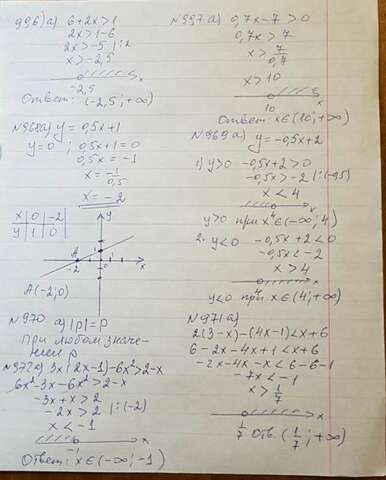 996) а) 6+2x>1
2x>1-6
2x>-5 |:2
x>-2,5
-2,5 x
Ответ: (-2,5;+∞)
№997а) 0,7x-7>0
0,7x>7
x> 7/0,7
x>10
10 x
Ответ: x∈(10;+∞)
№968а) y=0,5x+1
y=0; 0,5x+1=0
0,5x=-1
x= -1/0,5
x=-2
x | 0 | -2
y | 1 | 0
y
A 1
-2 0 x
A(-2;0)
№969а) y=-0,5x+2
1) y>0 -0,5x+2>0
-0,5x>-2 |:(-0,5)
x<4
4 x
y>0 при x∈(-∞;4)
2. y<0 -0,5x+2<0
-0,5x<-2
x>4
4 x
y<0 при x∈(4;+∞)
№970 а) |p|=p
При любом значе-
нием p
№972а) 3x(2x-1)-6x²>2-x
6x²-3x-6x²>2-x
-3x+x>2
-2x>2 |:(-2)
x<-1
-1 x
Ответ: x∈(-∞;-1)
№971а)
2(3-x)-(4x-1)<x+6
6-2x-4x+1<x+6
-2x-4x-x<6-6-1
-7x<-1
x> 1/7
1/7 x
Отв. (1/7;+∞)